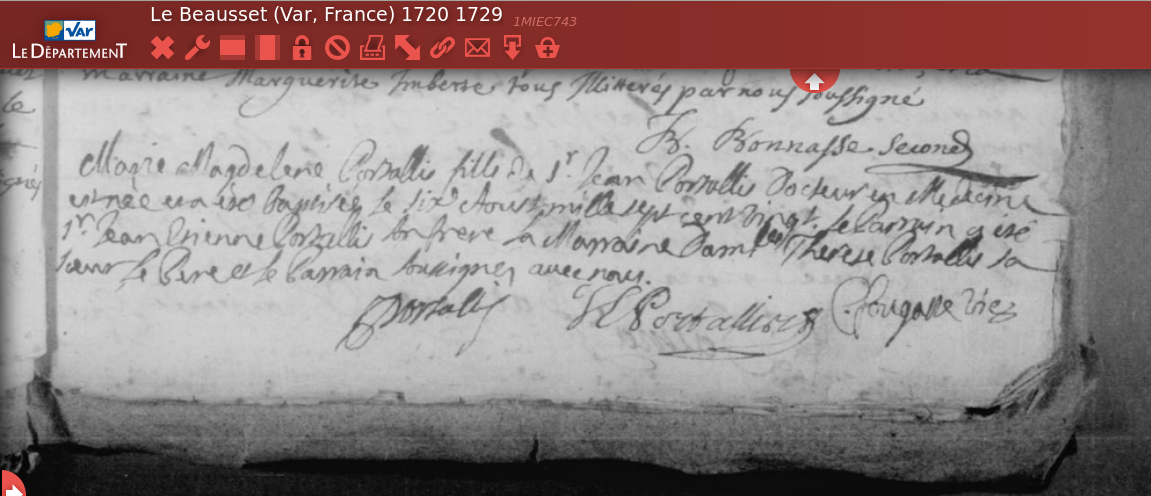 Le Beausset (Var, France) 1720 1729 1MIEC743
VAR
LE DÉPARTEMENT
marraine Marguerite Imberte tous Illitterés par nous soussigné
B. Bonnasse second
Marie Magdelene Portallis fille du Sr. Jean Portallis Docteur en Medecine
est née et a esté baptisée le six Aoust mille sept cent vingt. le parrain a été
Sr Jean Etienne Portallis son frere la Marraine Damlle Therese Portallis sa
sœur le Pere et le Parrain soussignes avec nous.
Portallis
Portallis C. fougasse vic